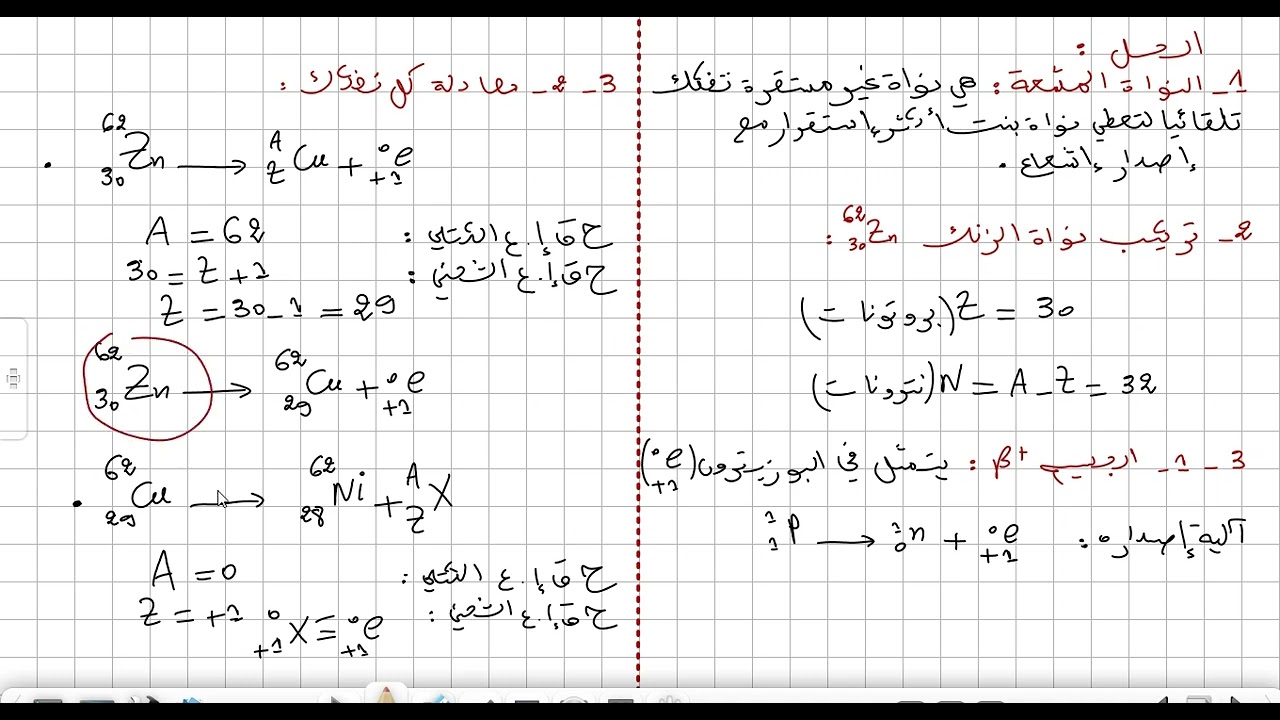 الحل :
1- النواة المشعة : هي نواة غير مستقرة تفكك
تلقائيا لتعطي نواة بنت أكثر إستقرار مع
إصدار إشعاع .
2- تركيب نواة الزنك ⁶²₃₀Zn :
Z = 30 (بروتونات)
N = A - Z = 32 (نترونات)
3-1- الجسيم β⁺ : يتمثل في البوزيترون (⁰₊₁e)
آلية إصداره : ¹₁P ⟶ ¹₀n + ⁰₊₁e
3-2- معادلة كل تفكك :
• ⁶²₃₀Zn ⟶ ᴬ_ZCu + ⁰₊₁e
ح ق إ. ع الكتلي : A = 62
ح ق إ. ع الشحني : 30 = Z + 1
Z = 30 - 1 = 29
⁶²₃₀Zn ⟶ ⁶²₂₉Cu + ⁰₊₁e
• ⁶²₂₉Cu ⟶ ⁶²₂₈Ni + ᴬ_ZX
ح ق إ. ع الكتلي : A = 0
ح ق إ. ع الشحني : Z = +1
⁰₊₁X ≡ ⁰₊₁e